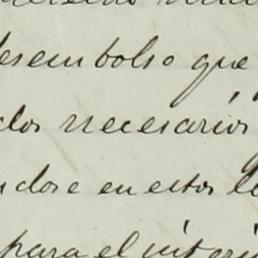 desembolso que
dos necesarios
ndose en estos
para el interi